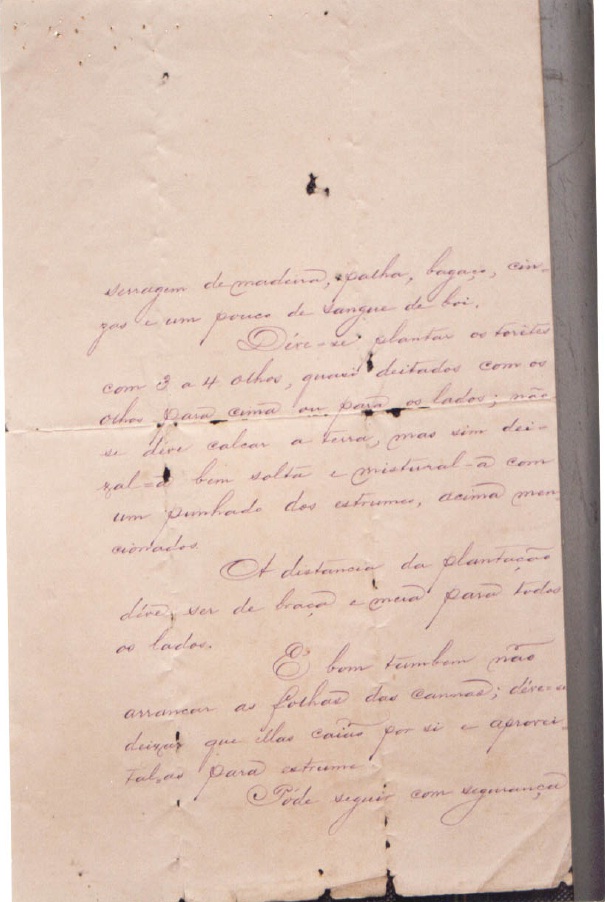 serragem de madeirã, palha, bagaço, cin-
zas e um pouco de sangue de boi.
Déve-se plantar os torêtes
com 3 a 4 olhos, quasi deitados com os
olhos parã cimã ou parã os lados; não
se déve calcar a terrã, mas sim dei-
xal-ã bem soltã e mistural-ã com
um punhado dos estrumes, acimã men-
cionados.
A distancia da plantação
déve ser de braçã e meiã parã todos
os lados.
É bom tambem não
arrancar as folhãs das cannãs; déve-se
deixar que ellas caião por si e aprovei-
tal-as parã estrume.
Póde seguir com segurançã